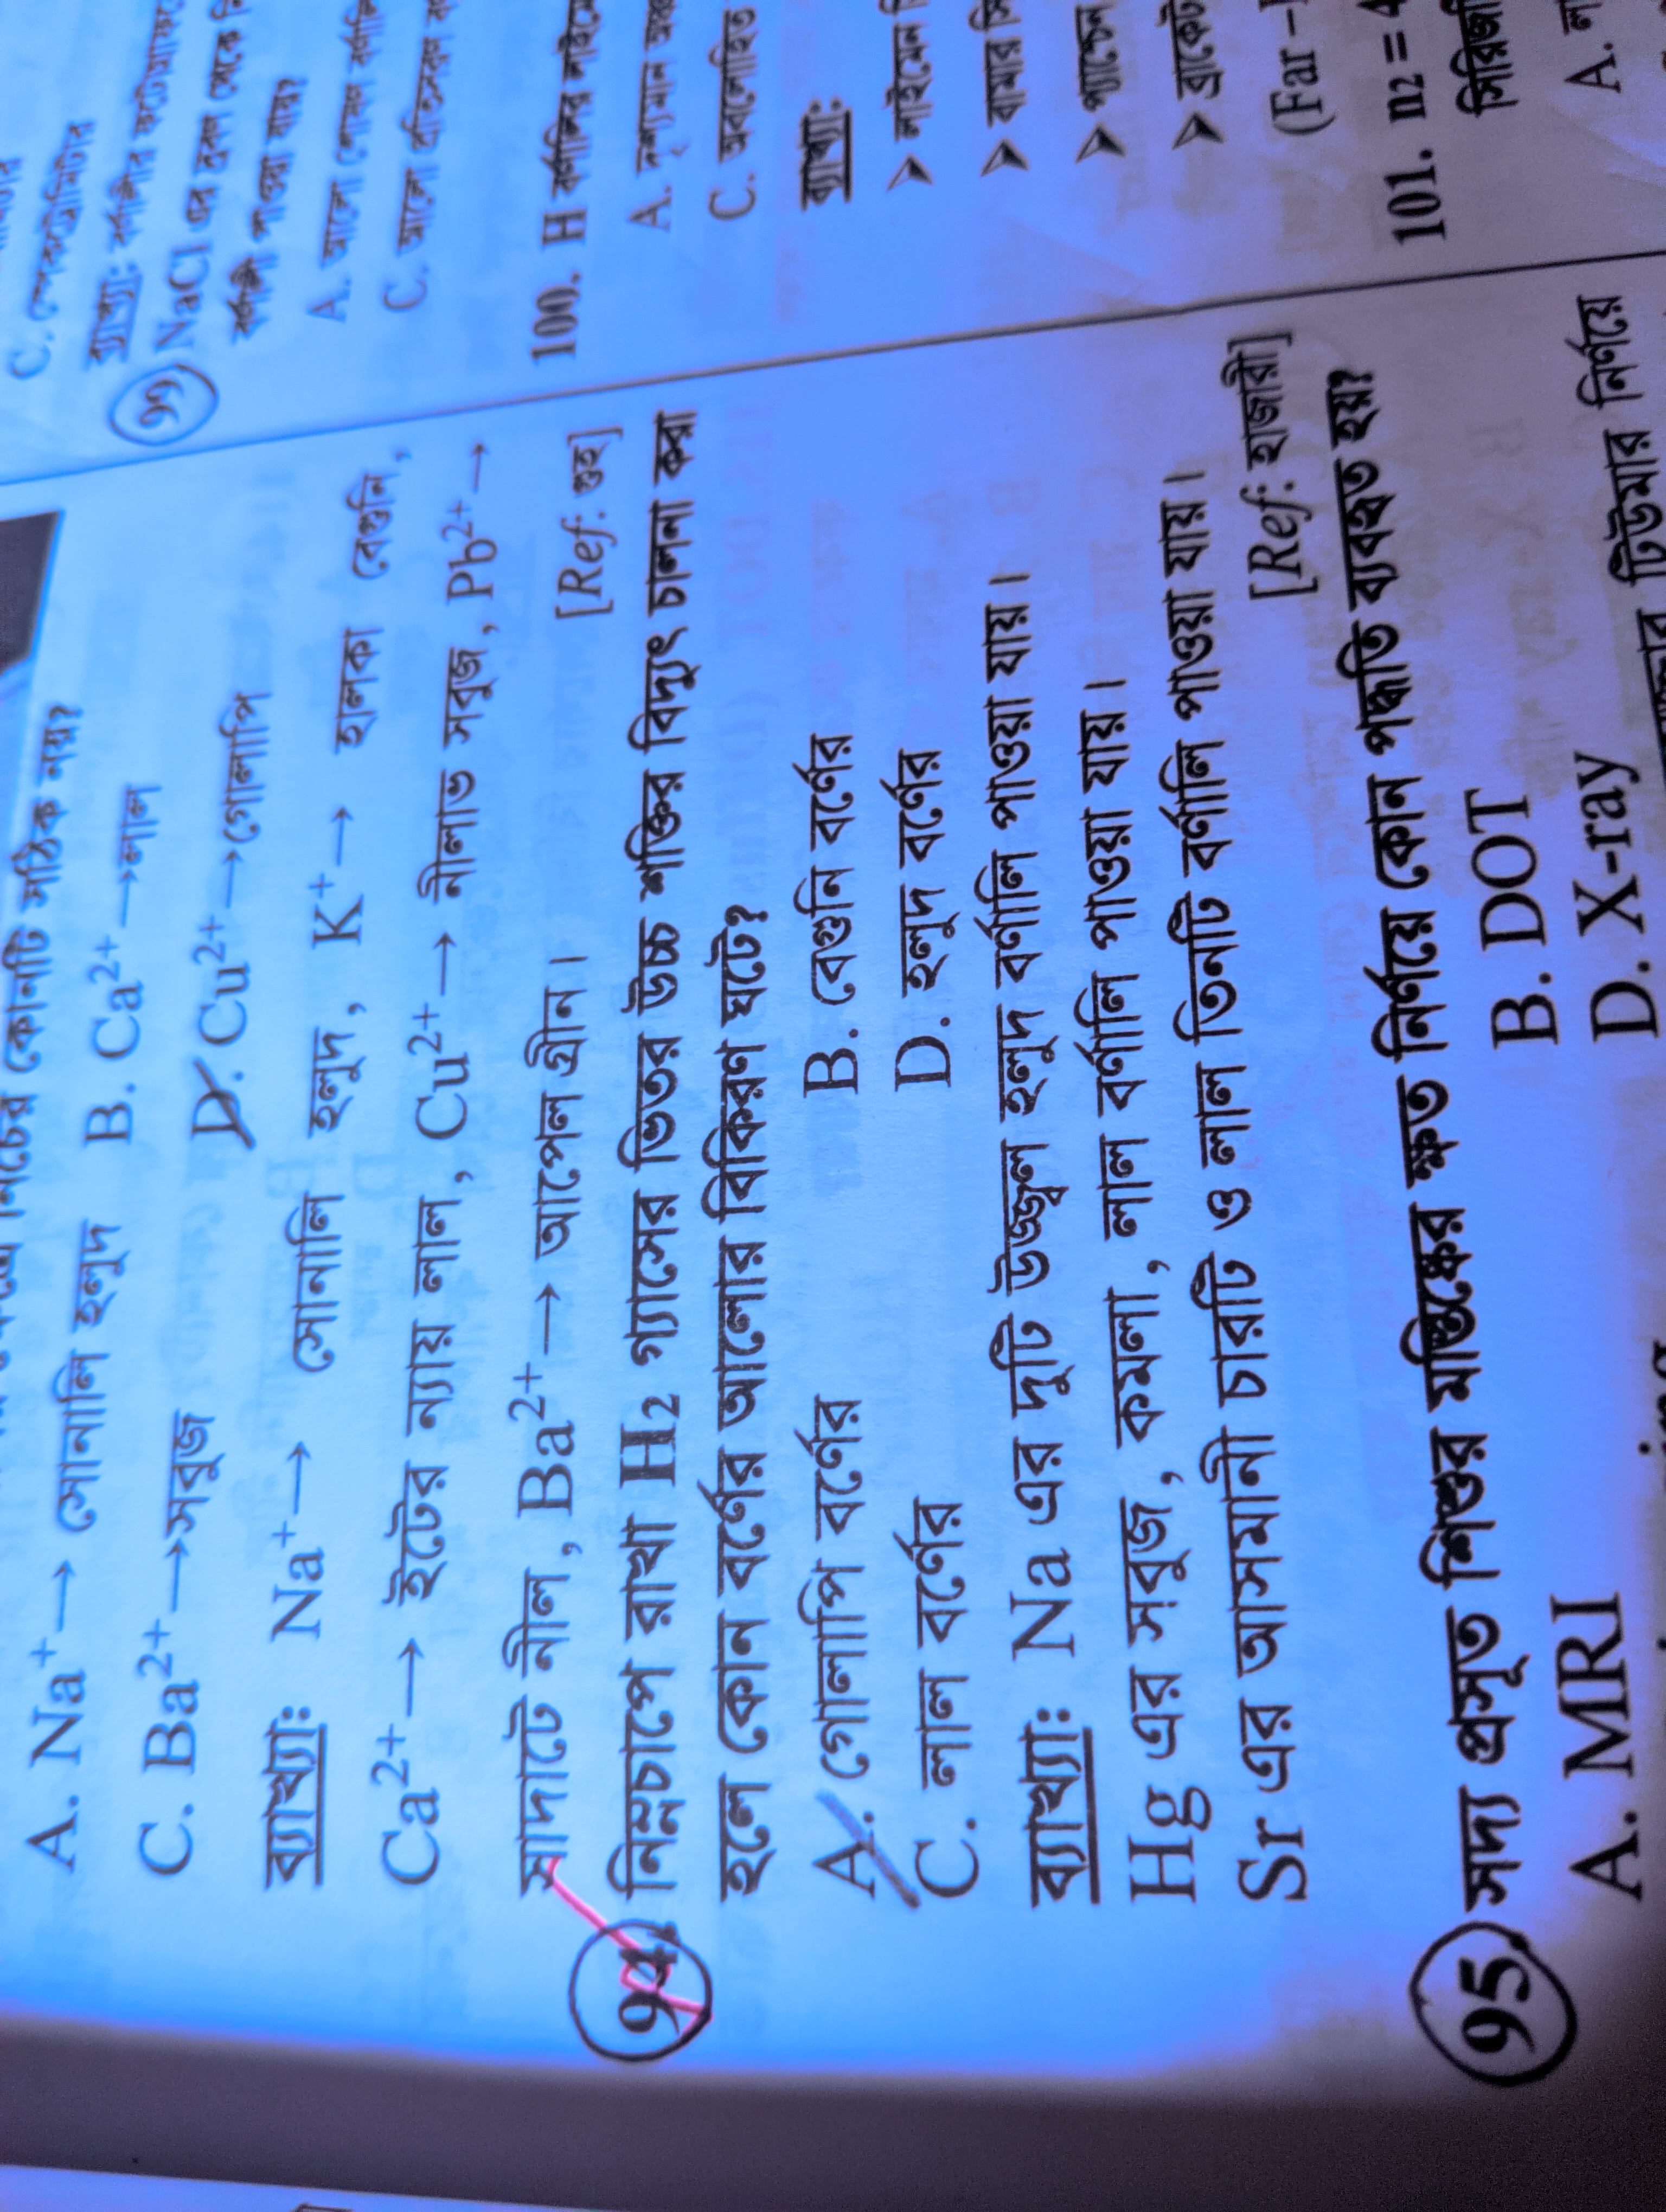 নিচের কোনটি সঠিক নয়?
A. Na⁺→ সোনালি হলুদ B. Ca²⁺→লাল
C. Ba²⁺→সবুজ D. Cu²⁺→গোলাপি
ব্যাখ্যা: Na⁺→ সোনালি হলুদ, K⁺→ হালকা বেগুনি,
Ca²⁺→ ইটের ন্যায় লাল, Cu²⁺→ নীলাভ সবুজ, Pb²⁺→
সাদাটে নীল, Ba²⁺→ আপেল গ্রীন। [Ref: গুহ]
94. নিম্নচাপে রাখা H₂ গ্যাসের ভিতর উচ্চ শক্তির বিদ্যুৎ চালনা করা
হলে কোন বর্ণের আলোর বিকিরণ ঘটে?
A. গোলাপি বর্ণের B. বেগুনি বর্ণের
C. লাল বর্ণের D. হলুদ বর্ণের
ব্যাখ্যা: Na এর দুটি উজ্জ্বল হলুদ বর্ণালি পাওয়া যায়।
Hg এর সবুজ, কমলা, লাল বর্ণালি পাওয়া যায়।
Sr এর আসমানী চারটি ও লাল তিনটি বর্ণালি পাওয়া যায়।
[Ref: হাজারী]
95. সদ্য প্রসূত শিশুর মস্তিষ্কের ক্ষত নির্ণয়ে কোন পদ্ধতি ব্যবহৃত হয়?
A. MRI B. DOT
D. X-ray
টিউমার নির্ণয়ে
C. স্পেকট্রোমিটার
ব্যাখ্যা: বর্ণালীর
99. NaCl এর দ্রবণ থেকে
বর্ণালী পাওয়া যায়?
A. আলো শোষণ
C. আলো প্রতিসরণ
100. H বর্ণালির লাইমেন
A. দৃশ্যমান
C. অবলোহিত
ব্যাখ্যা:
➤ লাইমেন
➤ বামার
➤ প্যাশ্চেন
➤ ব্রাকেট
(Far –
101. n₂ = 4
A.